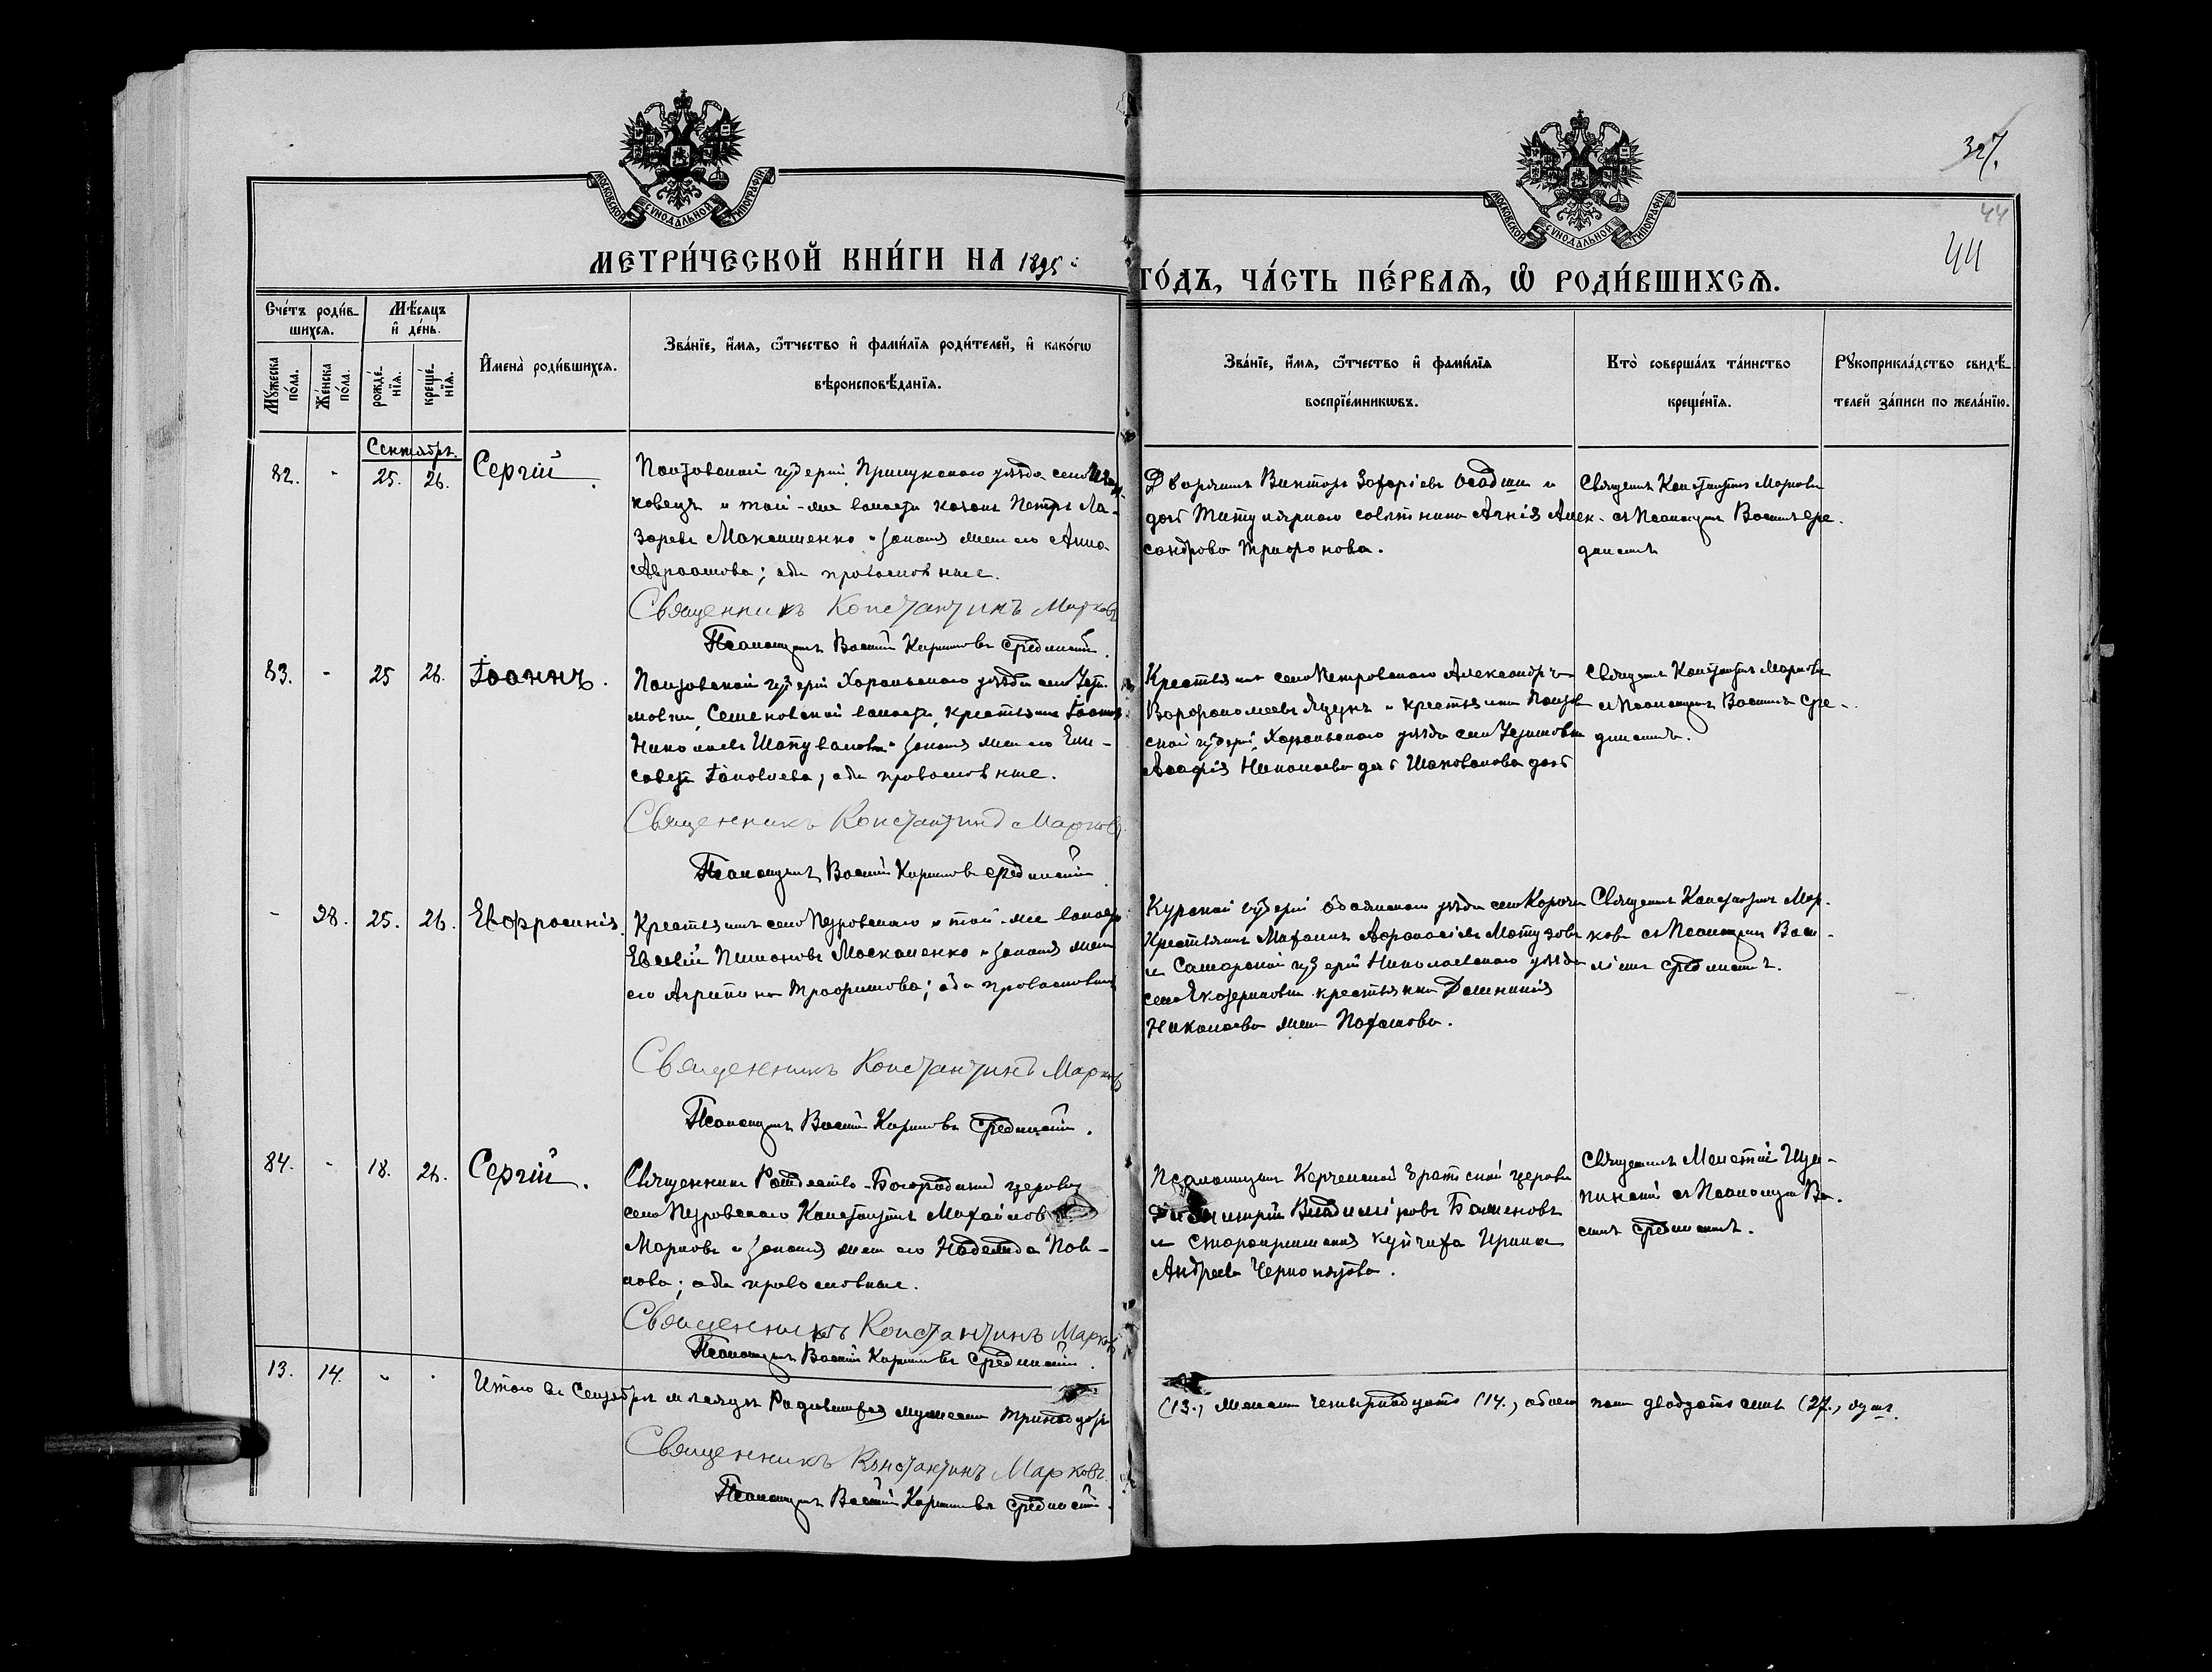 МОСКОВСКОЙ СѴНОДАЛЬНОЙ ТИПОГРАФІИ
МОСКОВСКОЙ СѴНОДАЛЬНОЙ ТИПОГРАФІИ
327.
44
44
МЕТРИ́ЧЕСКОЙ КНИ́ГИ НА 1895
ГО́ДЪ, ЧА́СТЬ ПЕ́РВАѦ, Ѡ҆ РОДИ́ВШИХСѦ.
Сче́тъ роди́в-
шихсѧ.
Мꙋ́жеска по́ла.
Же́нска по́ла.
Мѣ́сѧцъ
и҆ де́нь.
рожде́-нїѧ.
креще́-нїѧ.
И҆мена̀ роди́вшихсѧ.
Зва́нїе, и҆́мѧ, ѻ҆́тчество и҆ фами́лїѧ роди́телей, и҆ како́гѡ
вѣроисповѣ́данїѧ.
Зва́нїе, и҆́мѧ, ѻ҆́тчество и҆ фами́лїѧ
воспрїе́мникѡвъ.
Кто̀ соверша́лъ та́инство
креще́нїѧ.
Рꙋкоприкла́дство свидѣ́-
телей за́писи по жела́нїю.
Сентябрь.
82. - 25. 26. Сергій.
Полтавской губерніи Прилукскаго уѣзда села
ковецъ и той-же волости козакъ Петръ Ла-
заревъ Максименко и законная жена его Анна
Авраамова; оба православные.
Священникъ Константинъ Марковъ
Псаломщикъ Василій Кирилловъ Срединскій.
Дворянинъ Викторъ Захаріевъ и
дочь Титулярнаго совѣтника Агнія Алек-
сандрова Трифонова.
Священникъ Константинъ Марковъ
съ Псаломщик. Василіемъ Сре-
динскимъ
83. - 25 26. Іоаннъ.
Полтавской губерніи Хорольскаго уѣзда села Усти-
мовки, Семеновской волости, крестьянинъ Іоаннъ
Николаевъ Шаповаловъ и законная жена его Ели-
савета Іаковлева; оба православные.
Священникъ Константинъ Марковъ
Псаломщикъ Василій Кирилловъ Срединскій
Крестьянинъ села Петровскаго Александръ
Варфоломеевъ Яцунъ и крестьянка Полтав-
ской губерніи, Хорольскаго уѣзда села Устимовки
Николаева дочь Шаповалова
Священникъ Константинъ Марковъ
съ Псаломщик. Василіемъ Сре-
динскимъ.
- 98. 25. 26. Евфросинія.
Крестьянинъ села Петровскаго и той-же волости
Евсевій Москаленко и законная жена
его Агрипина Трофимова; оба православные
Священникъ Константинъ Марковъ
Псаломщикъ Василій Кирилловъ Срединскій.
Курской губерніи Обоянскаго уѣзда села
Крестьянинъ Афанасіевъ
и Самарской губерніи Николаевскаго уѣзда
села Екатериновки крестьянка Домникія
Николаева жена
Священникъ Константинъ Мар-
ковъ съ Псаломщик. Васи-
ліемъ Срединскимъ.
84. - 18. 26. Сергій.
Священникъ Рождество-Богородичной церкви
села Петровскаго Константинъ Михайловъ
Марковъ и законная жена его Надежда Пав-
лова; оба православные.
Священникъ Константинъ Марковъ
Псаломщикъ Василій Кирилловъ Срединскій.
Псаломщикъ Керченской церкви
Димитрій Владиміровъ Баженовъ
и купчиха Ирина
Андреева Чернопятова.
Священникъ Мелетій
съ Псаломщик. Ва-
силіемъ Срединскимъ.
13. 14.
Итого въ Сентябрѣ мѣсяцѣ Родившихся мужеска тринадцать
(13.), женска четырнадцать (14.), обоего пола двадцать семь (27.), душъ.
Священникъ Константинъ Марковъ.
Псаломщикъ Василій Кирилловъ Срединскій.